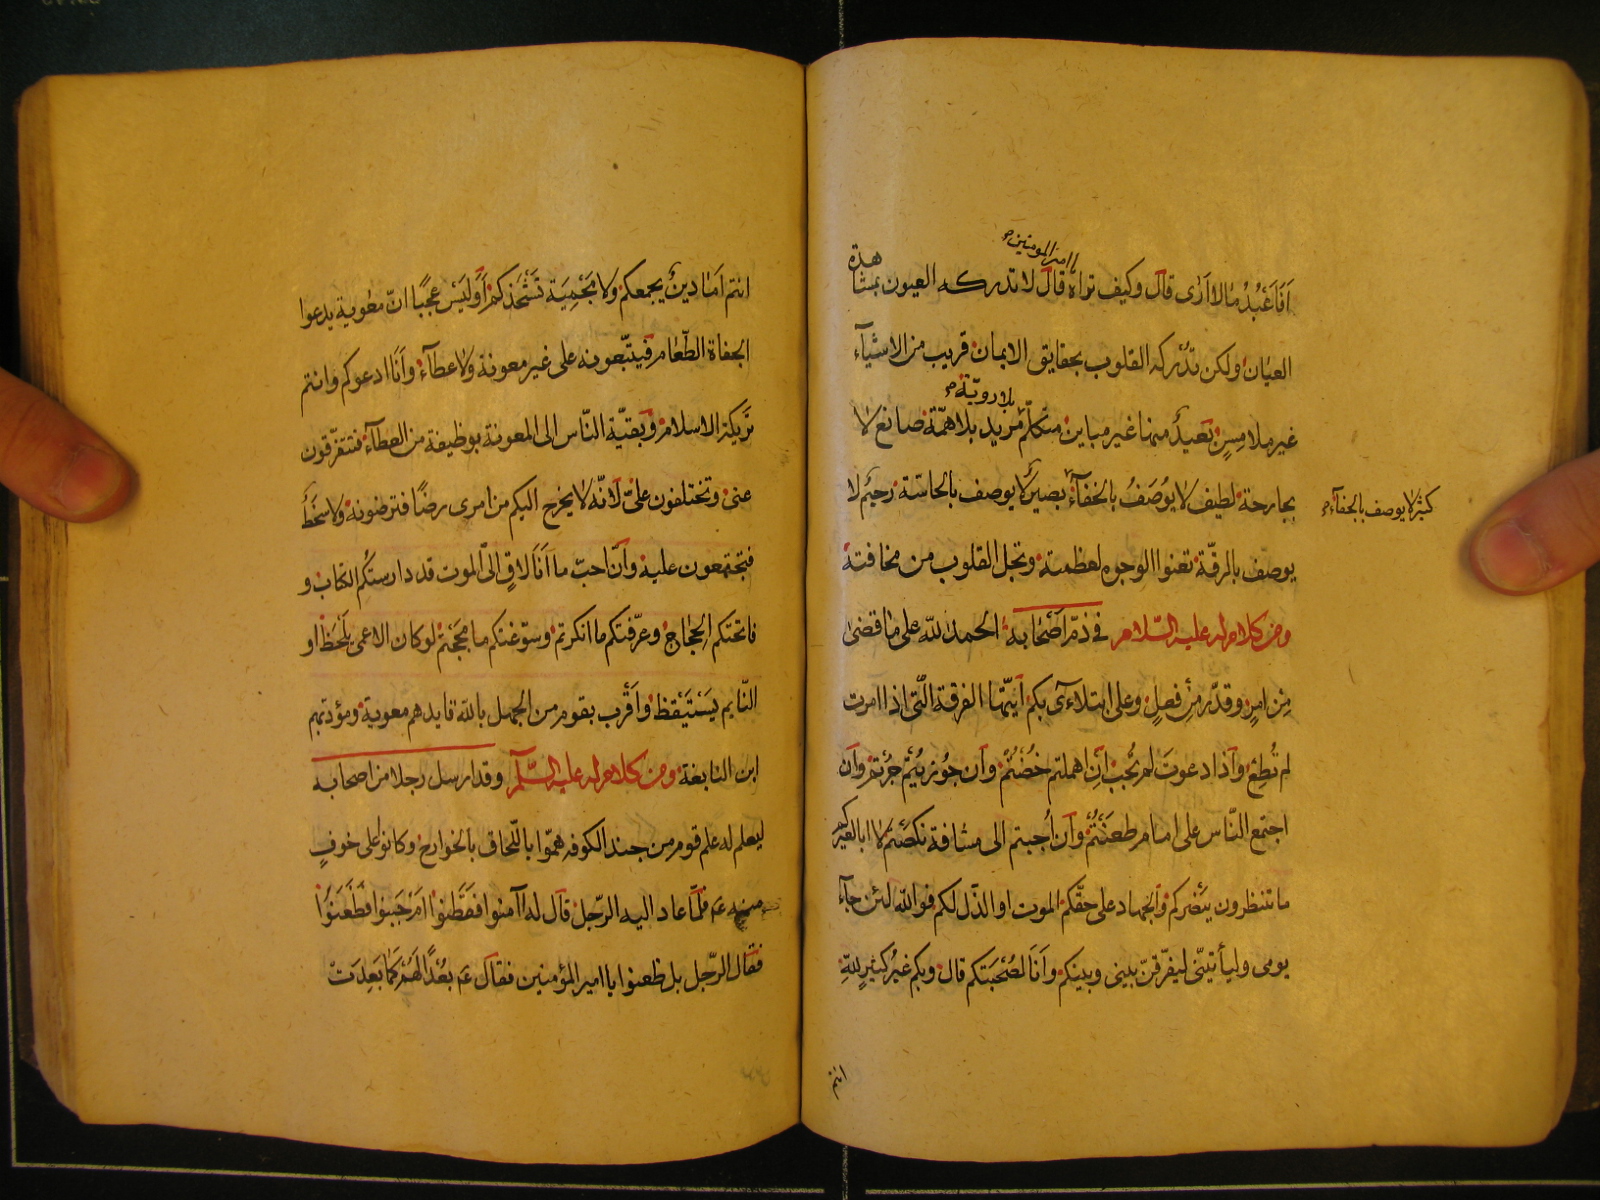 يا امير المومنين صح
اَفَاَعْبُدُ مالا اَرٰى قال وكيف تراه قال لا تدركه العيون بمشاهدة
العيان ولكن تدركه القلوب بحقايق الايمان قريب من الاشيآء
بلا رويّة صح
غير ملامِسٍ بَعيدٌ منها غير مباين متكلّم مريد بلا همّة صانع لا
بجارحة لطيف لا يُوصَفُ بالخفآء بصير لا يوصف بالحاسّة رحيم لا
كبير لا يوصف بالجفآء صح
يوصف بالرقّة تعنوا الوجوه لعظمته وتجل القلوب من مخافته
ومن كلام له عليه السّلام في ذمّ اَصْحٰابه الحمد للّه على ما قضى
مِن امرٍ وقدّر من فعلٍ وعلى ابتلاءى بكم اَيّتها الفرقة الّتى اذا امرت
لم تُطِعْ واذا دعوت لم تُجب اِن اهملتم خُضْتُمْ وان حُوربتم خُرتم وان
اجتمع النّاس على امام طعنتُمْ وان اُجبتم الى مشاقة نكصتم لا ابا لغيركم
ما تنتظرون بنَصْركم والجهاد على حقّكم الموت او الذّل لكم فواللّه لئن جآء
يومى وليأتينّى ليفرّقنّ بينى وبينكم وانا لصُحْبَتكم قال وبكم غيرُ كثيرٍ للّهِ
انتم
انتم اَمٰا دينٌ يجمعكم ولا مَحْمِيَة تَشْحَذكم اَوَلَيْسَ عجبًا انّ معوية يدعوا
الجفاة الطّغام فيتّبعونه على غير معونة ولا عطآء وانا ادعوكم وانتم
تَريكة الاسلام وبَقيّة النّاس الى المعونة بوظيفة من العطآء فتتفرّقون
عنى وتختلفون علىّ لانّه لا يخرج اليكم من امرى رضًا فترضونه ولا سَخَطٌ
فتجتمعون عليه وانّ احبّ ما اَنَا لاقٍ الىّ الموت قد دارستكُم الكتاب و
فاتحتكم الحِجاج وعرّفتكم ما انكرتم وسوّغتكم ما مَججتم لو كان الاعمى يلحَظ او
النّايم يَسْتَيْقظ واَقْرب بقوم من الجهل باللّه قايدهم معوية ومؤدّبهم
ابن النابغة ومن كلام له عليه السّلام وقد ارسل رجلا من اصحابه
ليعلم له علم قوم من جند الكوفه همّوا باللّحاق بالخوارج وكانوا على خوفٍ
منه عم فلمّا عاد اليه الرّجل قال له اآمنوا فقطنوا ام جَبنوا فظعَنُوا
فقال الرّجل بل ظعنوا يا امير المؤمنين فقال عم بعُدًا لهُم كما بَعِدَت